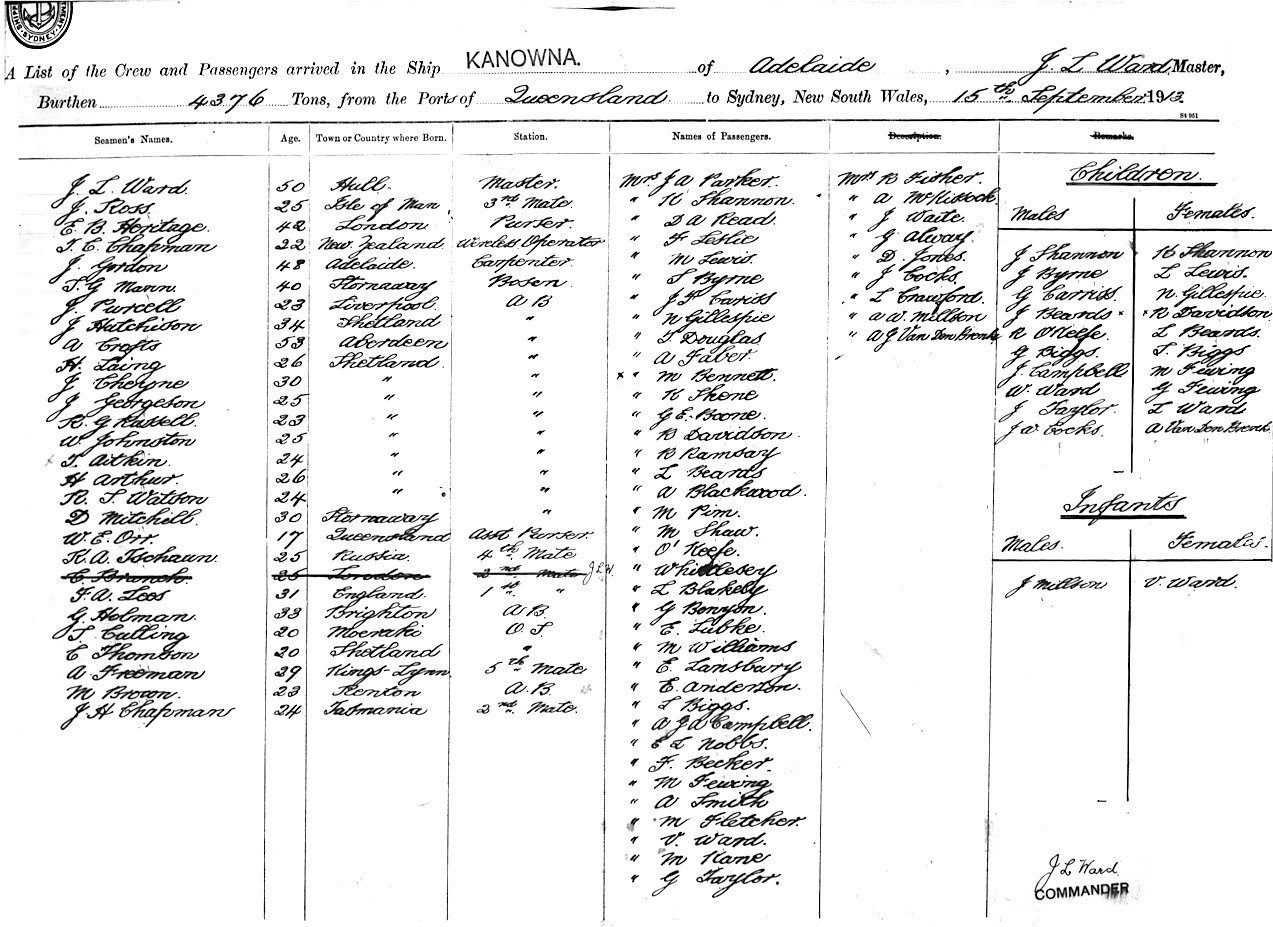 SYDNEY
A List of the Crew and Passengers arrived in the Ship KANOWNA. of Adelaide, J L Ward, Master,
Burthen 4376 Tons, from the Ports of Queensland to Sydney, New South Wales, 15th September 1913
St 951
Seamen's Names. Age. Town or Country where Born. Station. Names of Passengers. Description. Remarks.
J. L. Ward. 50 Hull. Master.
J. Ross. 25 Isle of Man. 3rd Mate.
E B. Heritage. 42 London. Purser.
T. C. Chapman 22 New Zealand Wireless Operator
J. Gordon 48 Adelaide. Carpenter.
T. G Mann. 40 Stornaway Bosen.
J. Purcell 23 Liverpool. A B
J Hutchison 34 Shetland "
A Crafts 53 Aberdeen "
H. Laing 26 Shetland "
J. Cheyne 30 " "
J Georgeson 25 " "
R. G Russell. 23 " "
W Johnston 25 " "
T. Aitkin. 24 " "
H Arthur. 26 " "
R. T. Watson 24 " "
D Mitchell. 30 Stornaway "
W. E. Orr. 17 Queensland Asst Purser.
K. A. Tschaun. 25 Russia. 4th Mate
C Branch. 25 London 2nd Mate J.L.W.
F. A. Lees 31 England. 1st "
G. Holman. 33 Brighton A B.
T Culling 20 Moeraki O. S.
E Thomson 20 Shetland "
A Freeman 29 Kings-Lynn 5th Mate.
M Brown. 23 Renton A. B.
J H Chapman 24 Tasmania 2nd Mate.
Mrs J A Parker.
" K Shannon.
" D A Read.
" F Leslie
" M Lewis.
" S Byrne
" J F Cariss
" N Gillespie
" T Douglas
" A Faber.
x " M Bennett.
" K Shone
" G E. Boone.
" B Davidson.
" B Ramsay
" L Beards
" A Blackwood.
" M Pim.
" M Shaw.
" O'Keefe.
" Whittlesey
" L Blakely
" G Benyon.
" E. Lubke.
" M Williams
" E. Lansbury
" E. Anderson.
" L Biggs.
" A J A Campbell.
" E L Nobbs.
" F. Becker.
" M Fewing
" A Smith
" M Fletcher.
" V. Ward.
" M Kane
" G Taylor.
Mrs B Fisher.
" A McKissock.
" J Waite.
" G Alway.
" D. Jones.
" J Cocks.
" L Crawford.
" A W. Millson
" A J Van Den Bronk
Children.
Males Females.
J Shannon K Shannon
J Byrne L Lewis.
G Carriss. N. Gillespie.
J Beards R Davidson
R O'Keefe. L Beards.
G Biggs. T. Biggs
J. Campbell M Fewing
W. Ward G Fewing
J Taylor. L Ward
J W Cocks. A Van Den Bronk
Infants
Males. Females.
J Millson V. Ward.
J L Ward
COMMANDER